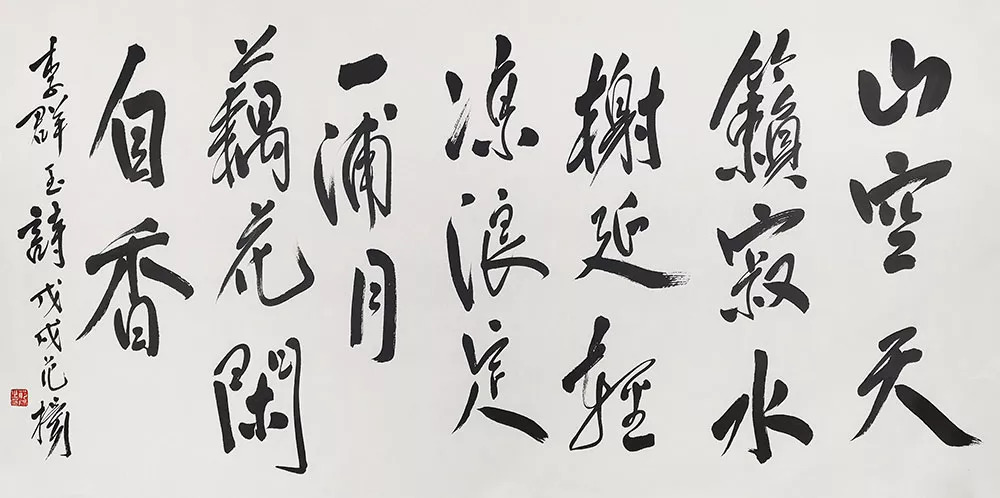 山空天
籟寂水
榭延輕
涼浪定
一浦月
藕花閑
自香
李群玉詩戊戌范擴